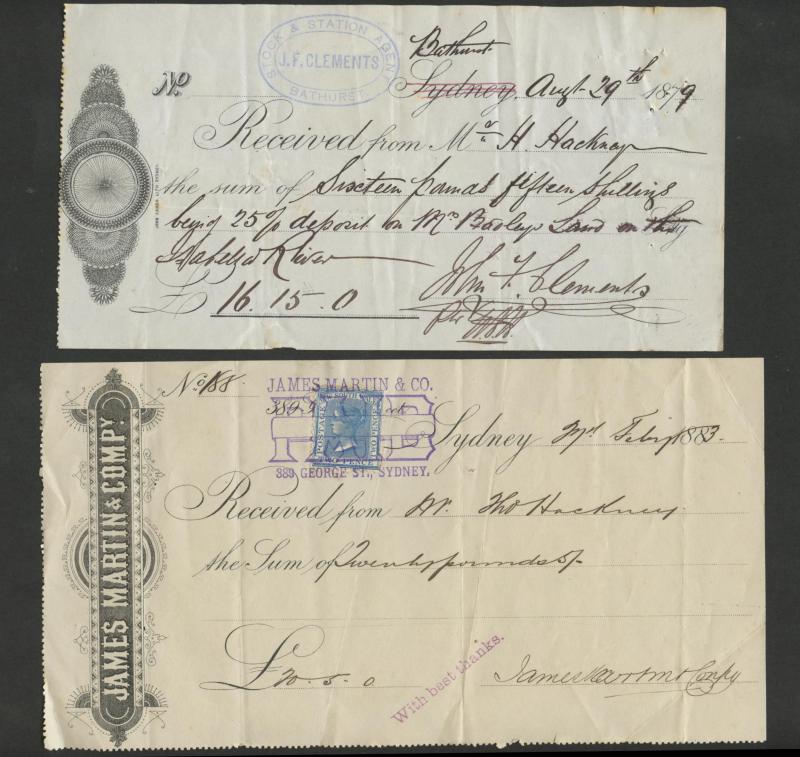 STOCK & STATION AGENT
J.F. CLEMENTS
BATHURST.
No.
Bathurst
Sydney, Augt 29th 1879
Received from Mr H. Hackney
the sum of Sixteen pounds fifteen shillings
being 25% deposit on Land on
Isabella River
£ 16.15.0
John F. Clements
per
JAMES MARTIN & COMPY.
No 188.
JAMES MARTIN & CO.
POSTAGE
NEW SOUTH WALES
TWO PENCE
TWO PENCE
389 GEORGE ST., SYDNEY.
Sydney 1883.
Received from Mr. Thos Hackney
the Sum of Twenty pounds 5/-
£ 20.5.0
With best thanks.
James Martin & Compy